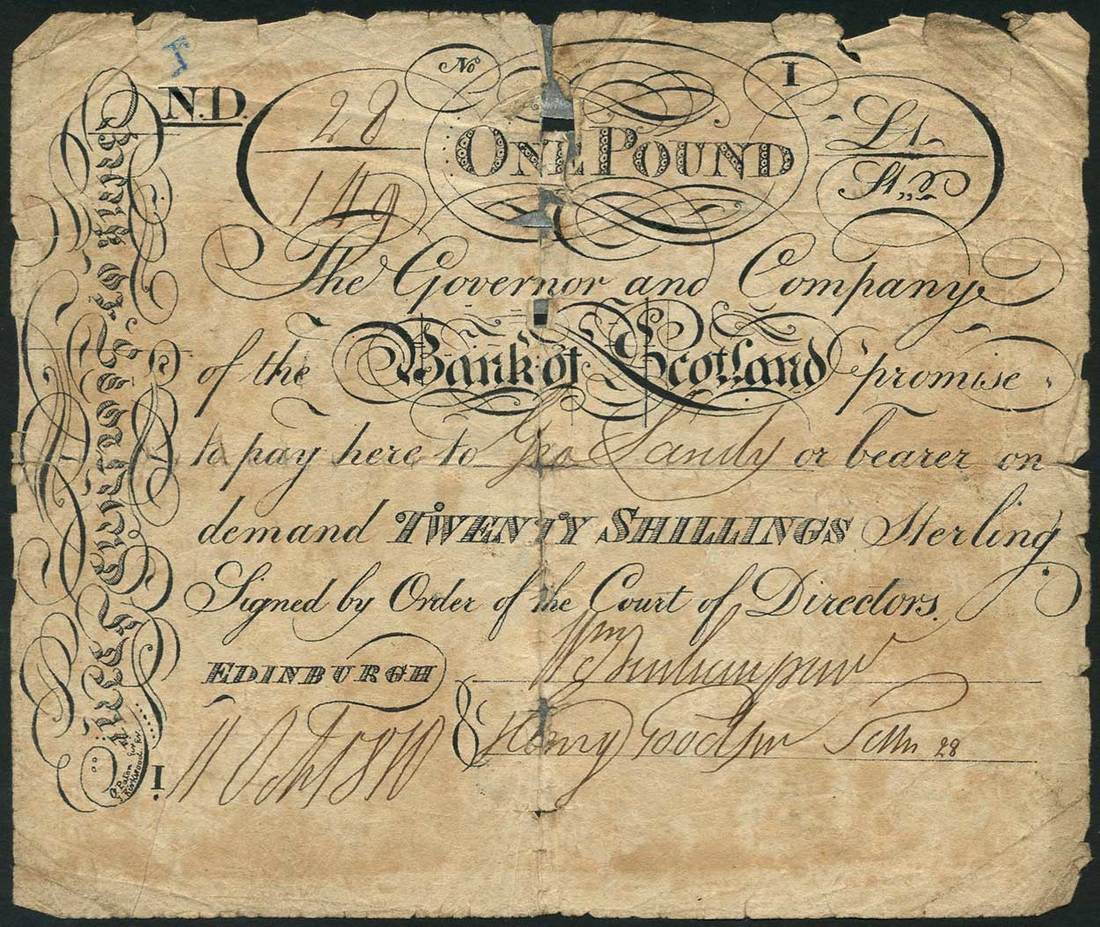 I
N.D.
No I
28 ONE POUND L1
149 St.,,
The Governor and Company
of the Bank of Scotland promise
to pay here to Geo Sandy or bearer on
demand TWENTY SHILLINGS Sterling
Signed by Order of the Court of Directors.
EDINBURGH Wm
I. 11 Oct 1810 & Henry 28